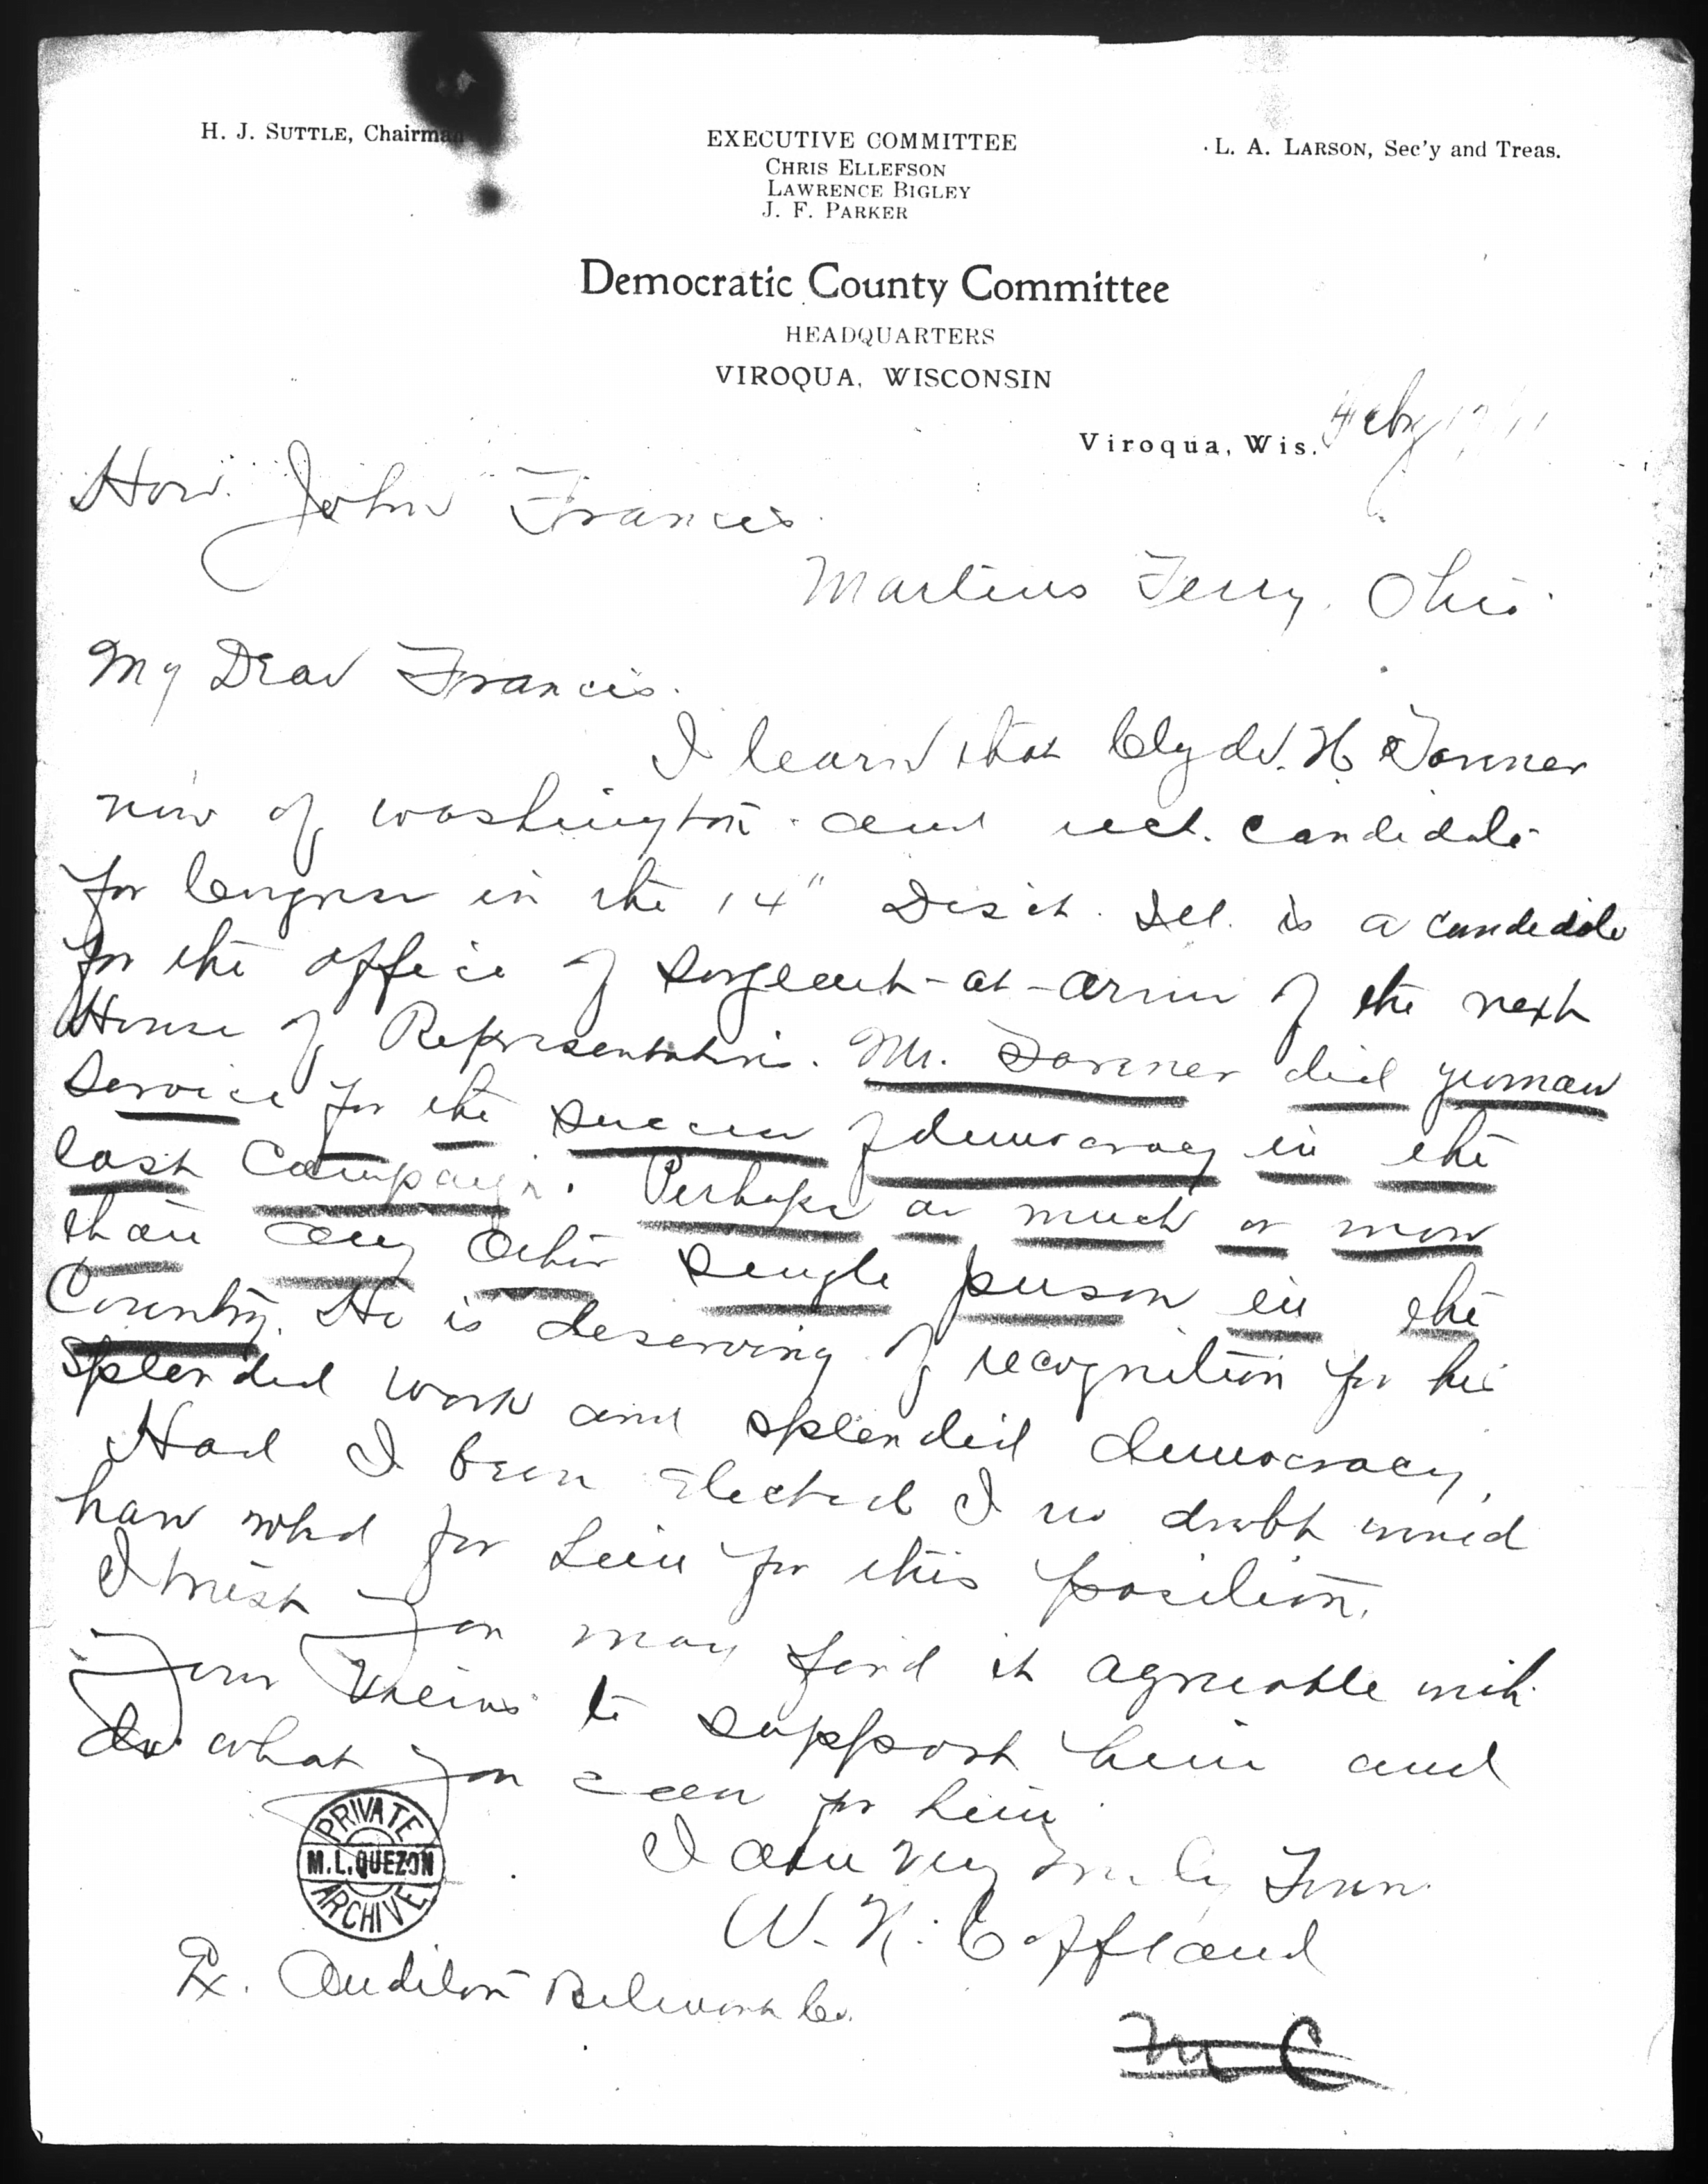 H. J. SUTTLE, Chairman
EXECUTIVE COMMITTEE
CHRIS ELLEFSON
LAWRENCE BIGLEY
J. F. PARKER
L. A. LARSON, Sec'y and Treas.
Democratic County Committee
HEADQUARTERS
VIROQUA, WISCONSIN
Viroqua, Wis. Feby
Hon. John Francis.
Martins Ferry, Ohio.
My Dear Francis.
I learn that Clyde. H. Tavenner
now of washington and candidate
for Congress in the 14" Ill. is a candidate
for the office of Sergeant-at-arms of the next
House of Representatives. Mr. Tavenner did yeoman
Service for the success of democracy in the
last Campaign. Perhaps as much or more
than any other single person in the
Country. He is deserving of recognition for his
splendid work and splendid democracy,
Had I been Elected I no doubt would
have voted for him for this position.
I trust you may find it agreeable with
your views to support him and
do what you can for him.
I am Very Truly Yours.
W. N. Coffland
Ex. Auditor Belmont Co.
PRIVATE
M.L.QUEZON
ARCHIVE
M C